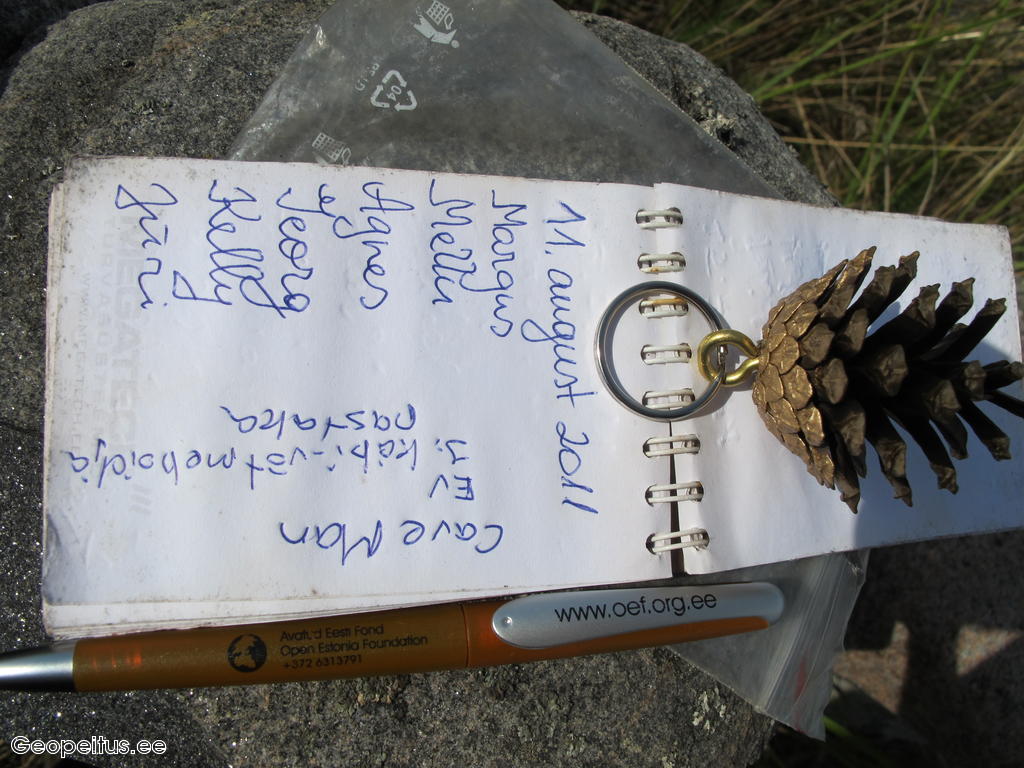 11. august 2011
Margus
Mellu
Agnes
Georg
Kelly
Jüri
Cave Man
EV
pastaka
www.oef.org.ee
Avatud Eesti Fond
Open Estonia Foundation
+372 6313791
Geopeitus.ee